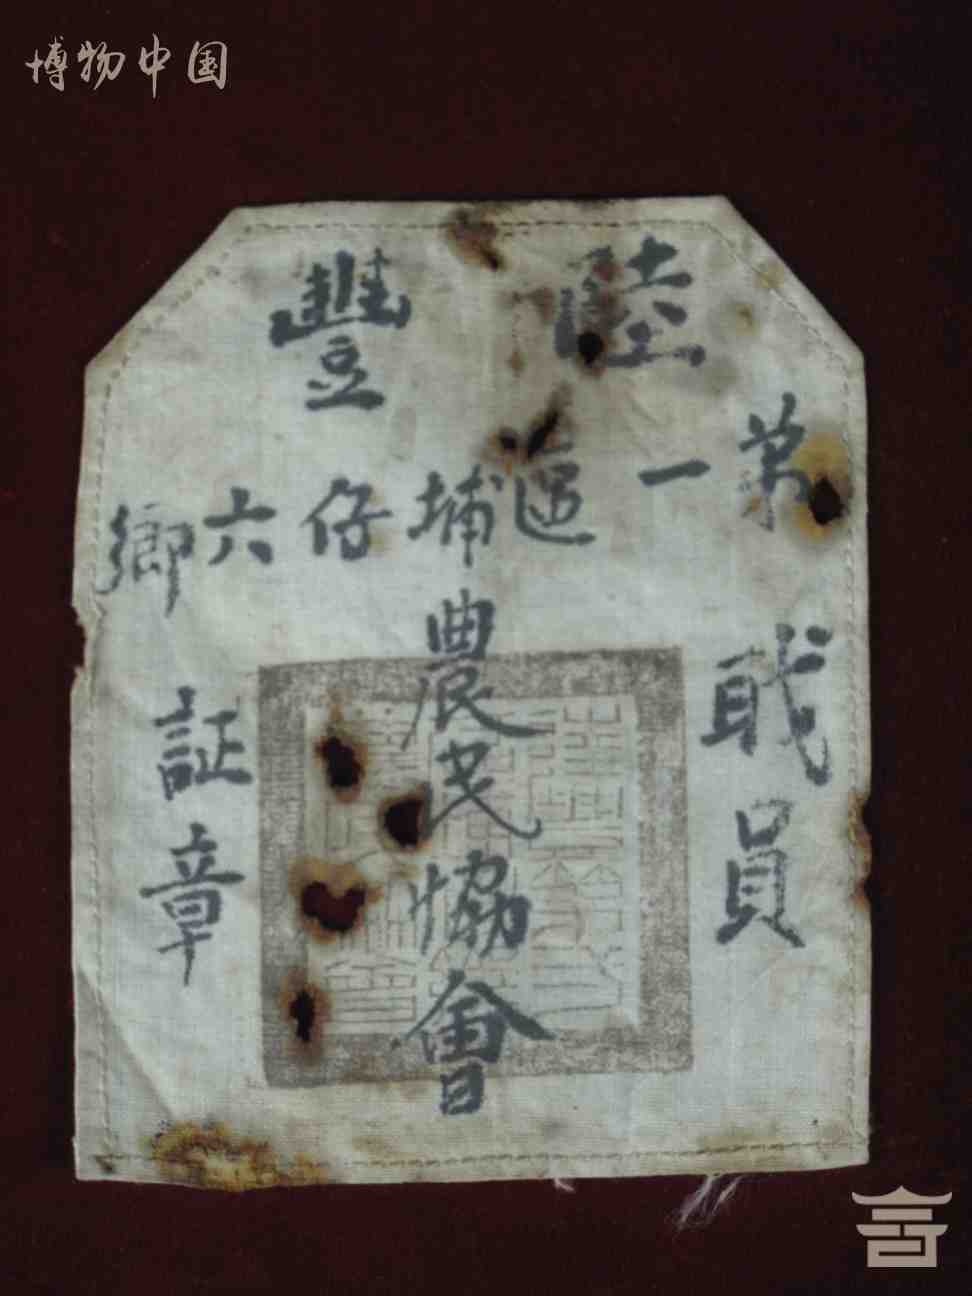 博物中国
陸豐
第一區埔仔六鄉
農民協會
戝員
証章